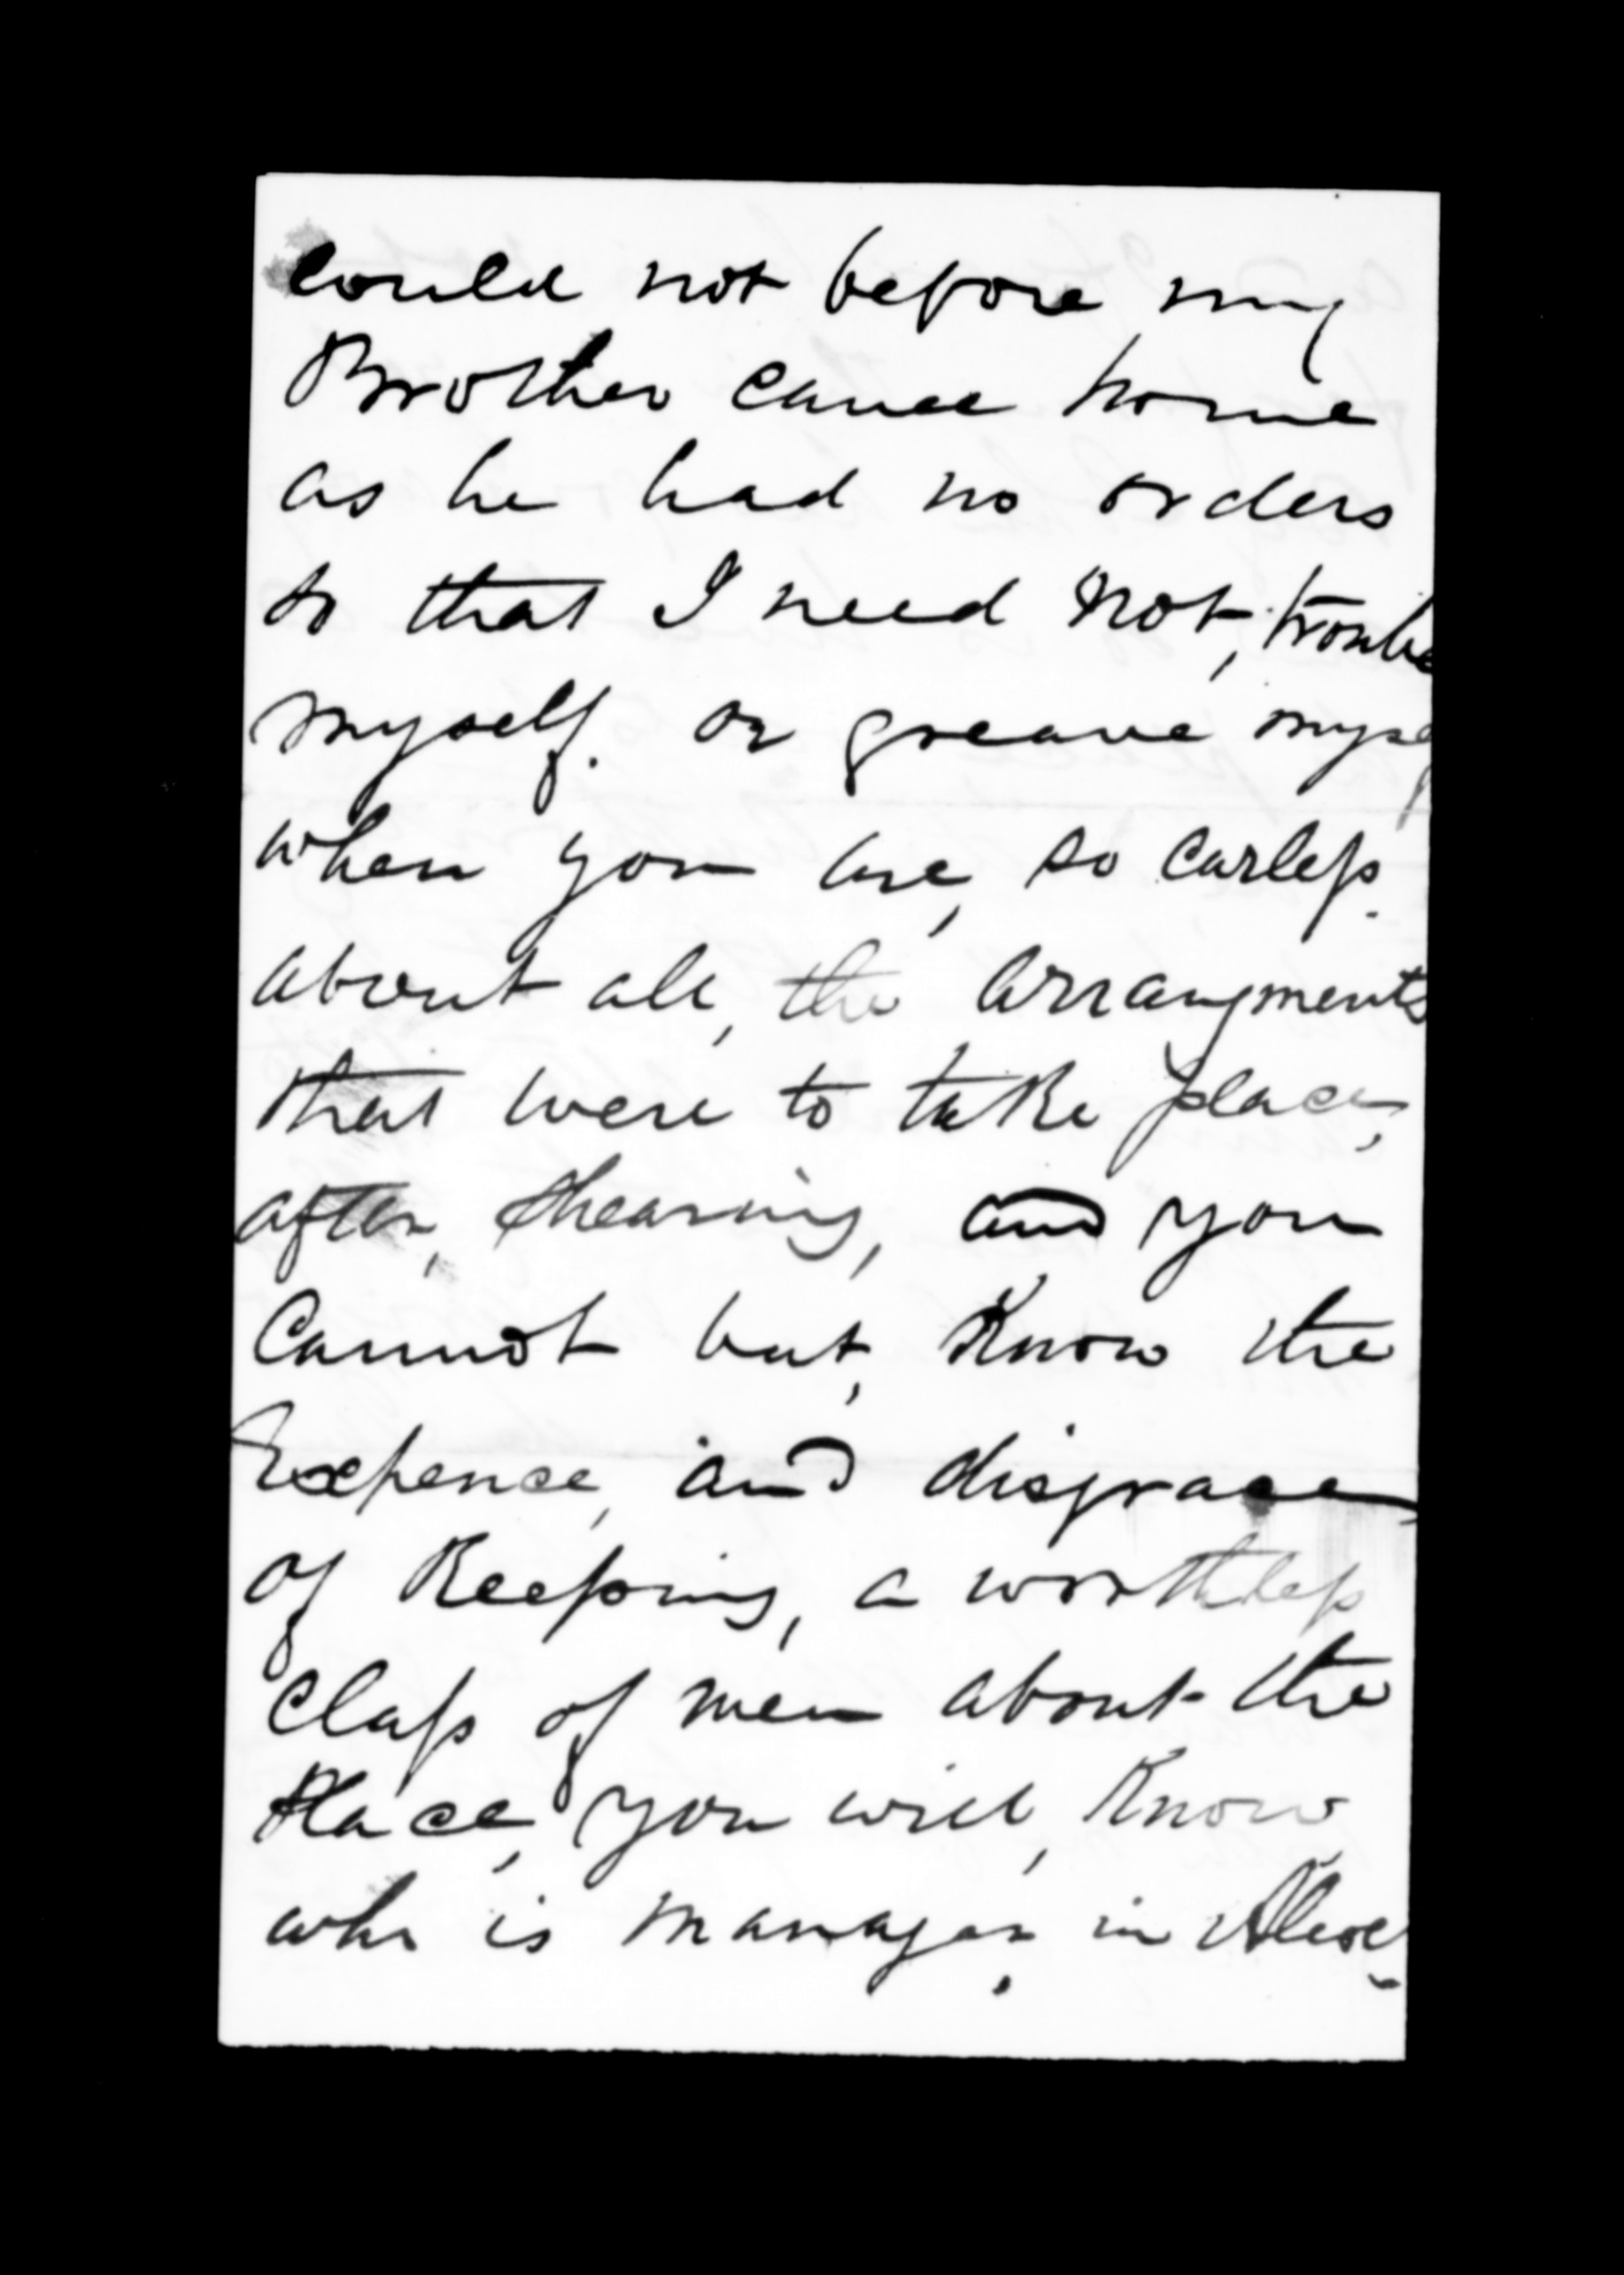 could not before my
Brother came home
as he had no orders
so that I need not, trouble
myself. or greave myself
when you are, so carless.
about all, the arrangments
that were to take place,
after, shearing, and you
Cannot but, Know the
Expence, and disgrace
of Keeping, a worthless
class of men about the
Place, you will, Know
who is manager. in